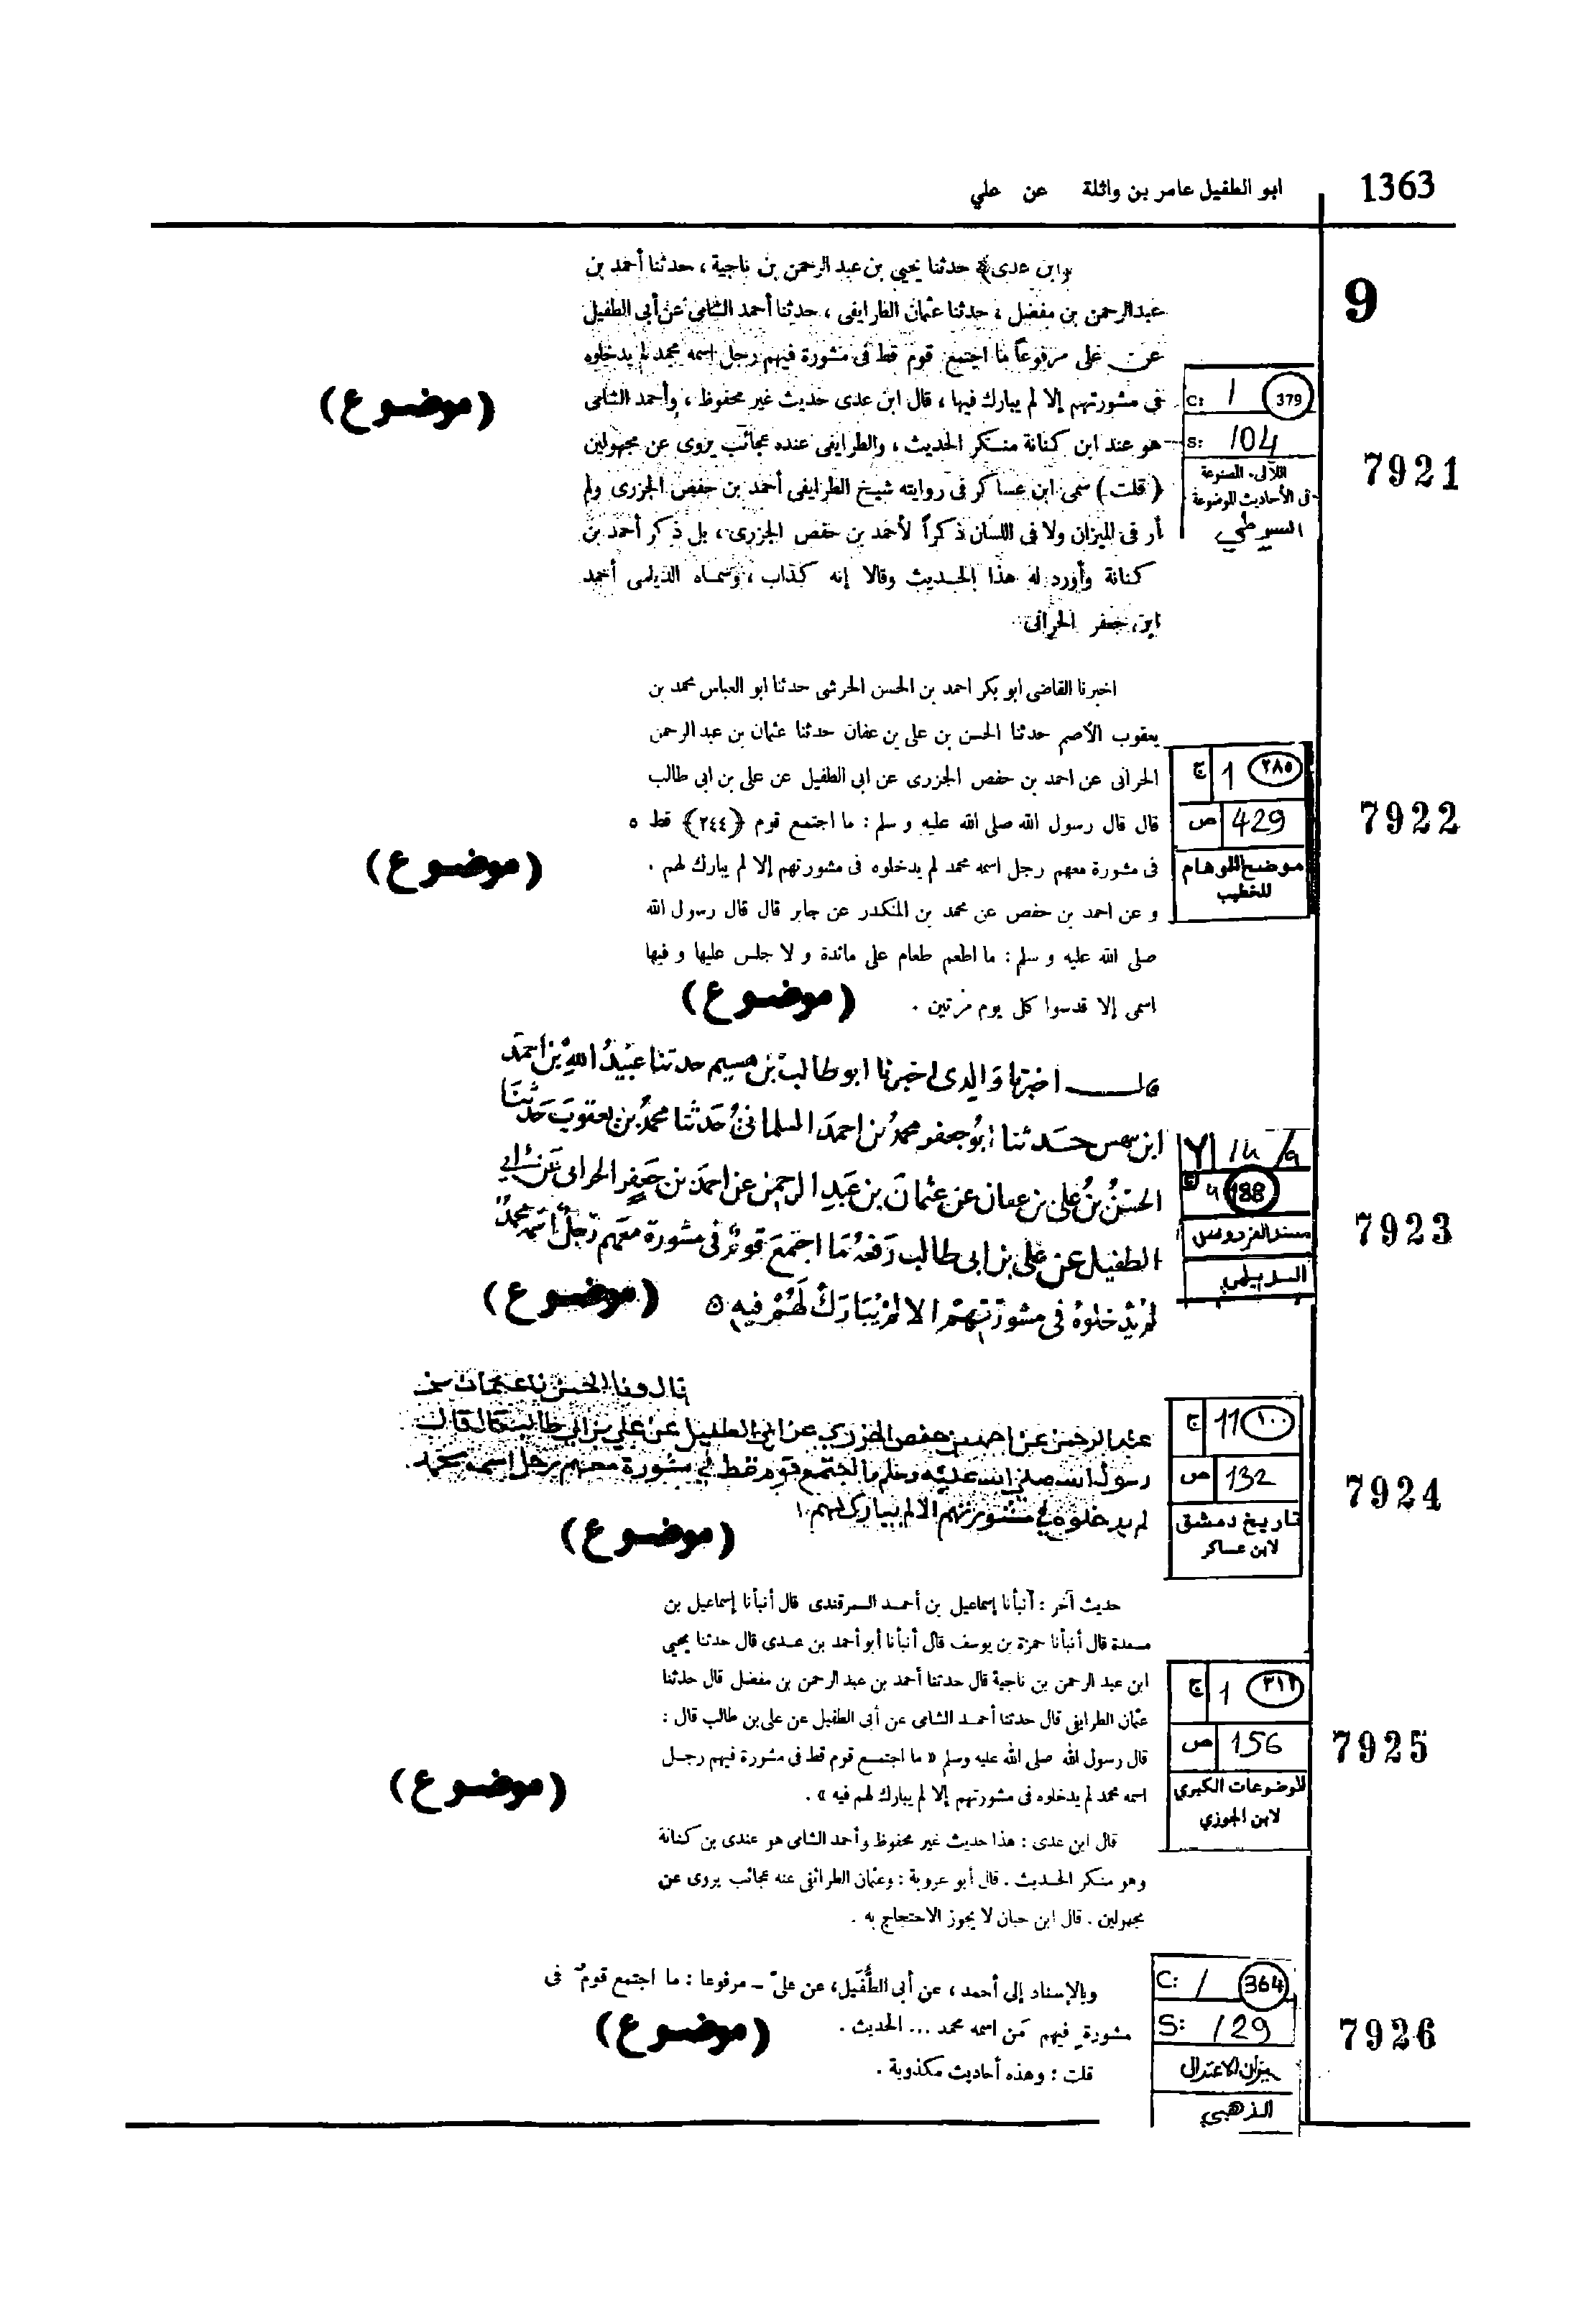 1363
ابو الطفيل عامر بن واثلة عن علي
9
﴿ابن عدى﴾ حدثنا يحيي بن عبد الرحمن بن ناجية ، حدثنا أحمد بن
عبدالرحمن بن مفضل ، حدثنا عثمان الطرايفى ، حدثنا أحمد الشامى عن أبى الطفيل
عن على مرفوعاً ما اجتمع قوم قط فى مشورة فيهم رجل اسمه محمد لم يدخلوه
فى مشورتهم إلا لم يبارك فيها ، قال ابن عدى حديث غير محفوظ ، وأحمد الشامى
هو عند ابن كنانة منكر الحديث ، والطرايفى عنده عجائب يروى عن مجهولين
( قلت ) سمى ابن عساكر فى روايته شيخ الطرايفى أحمد بن حفص الجزرى ولم
أر فى الميزان ولا فى اللسان ذكراً لأحمد بن حفص الجزرى ، بل ذكر أحمد بن
كنانة وأورد له هذا الحديث وقالا إنه كذاب ، وسماه الديلمى أحمد
ابن جعفر الحرانى
(موضوع)
C: 1 379
S: 104
اللآلى المصنوعة
فى الأحاديث الموضوعة
السيوطي
7921
اخبرنا القاضى ابو بكر احمد بن الحسن الحرشى حدثنا ابو العباس محمد بن
يعقوب الأصم حدثنا الحسن بن على بن عفان حدثنا عثمان بن عبد الرحمن
الحرانى عن احمد بن حفص الجزرى عن ابى الطفيل عن على بن ابى طالب
قال قال رسول الله صلى الله عليه و سلم : ما اجتمع قوم ﴿٢٤٤﴾ قط ٥
فى مشورة معهم رجل اسمه محمد لم يدخلوه فى مشورتهم إلا لم يبارك لهم .
و عن احمد بن حفص عن محمد بن المنكدر عن جابر قال قال رسول الله
صلى الله عليه و سلم : ما اطعم طعام على مائدة و لا جلس عليها و فيها
اسمى إلا قدسوا كل يوم مرتين .
(موضوع)
(موضوع)
ج 1 ٢٨٥
ص 429
موضح اللوهام
للخطيب
7922
قال اخبرنا والدى اخبرنا ابو طالب بن حدثنا عبيد الله بن احمد
ابن حدثنا ابو جعفر محمد بن احمد حدثنا محمد بن يعقوب حدثنا
الحسن بن على بن عفان عن عثمان بن عبد الرحمن عن احمد بن جعفر الحرانى عن ابي
الطفيل عن على بن ابى طالب رفعه ما اجتمع قوم فى مشورة معهم رجل اسمه محمد
لم يدخلوه فى مشورتهم الا لم يبارك لهم فيه ٥
(موضوع)
188
مسند الفردوس
الديلمي
7923
قال ونا الحسن نا عثمان بن
عبد الرحمن عن احمد بن حفص الجزري عن ابي الطفيل عن علي بن ابي طالب قال قال
رسول الله صلى الله عليه وسلم ما اجتمع قوم قط في مشورة معهم رجل اسمه محمد
لم يدخلوه في مشورتهم الا لم يبارك لهم
(موضوع)
ج 11 ١٠٠
ص 132
تاريخ دمشق
لابن عساكر
7924
حديث آخر : أنبأنا إسماعيل بن أحمد السمرقندى قال أنبأنا إسماعيل بن
مسعدة قال أنبأنا حمزة بن يوسف قال أنبأنا أبو أحمد بن عدى قال حدثنا يحيي
ابن عبد الرحمن بن ناجية قال حدثنا أحمد بن عبد الرحمن بن مفضل قال حدثنا
عثمان الطرايفى قال حدثنا أحمد الشامى عن أبى الطفيل عن على بن طالب قال :
قال رسول الله صلى الله عليه وسلم « ما اجتمع قوم قط فى مشورة فيهم رجل
اسمه محمد لم يدخلوه فى مشورتهم إلا لم يبارك لهم فيه » .
قال ابن عدى : هذا حديث غير محفوظ وأحمد الشامى هو عندى بن كنانة
وهو منكر الحديث . قال أبو عروبة : وعثمان الطرائفى عنده عجائب يروى عن
مجهولين . قال ابن حبان لا يجوز الاحتجاج به .
(موضوع)
ج 1 ٣١٢
ص 156
الموضوعات الكبري
لابن الجوزي
7925
وبالإسناد إلى أحمد ، عن أبى الطُّفَيل، عن علىّ – مرفوعا : ما اجتمع قومٌ فى
مشورةٍ فيهم مَن اسمه محمد ... الحديث .
قلت : وهذه أحاديث مكذوبة .
(موضوع)
C: 1 364
S: 129
ميزان الاعتدال
الذهبي
7926